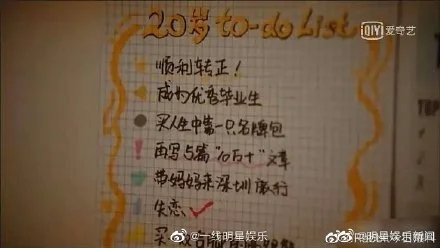 20岁 to-do List
iQIYI 爱奇艺
顺利转正!
成为优秀毕业生
买人生中第一只名牌包
再写5篇"10万+"文章
带妈妈来深圳旅行
失恋
买
TOP
@一线明星娱乐